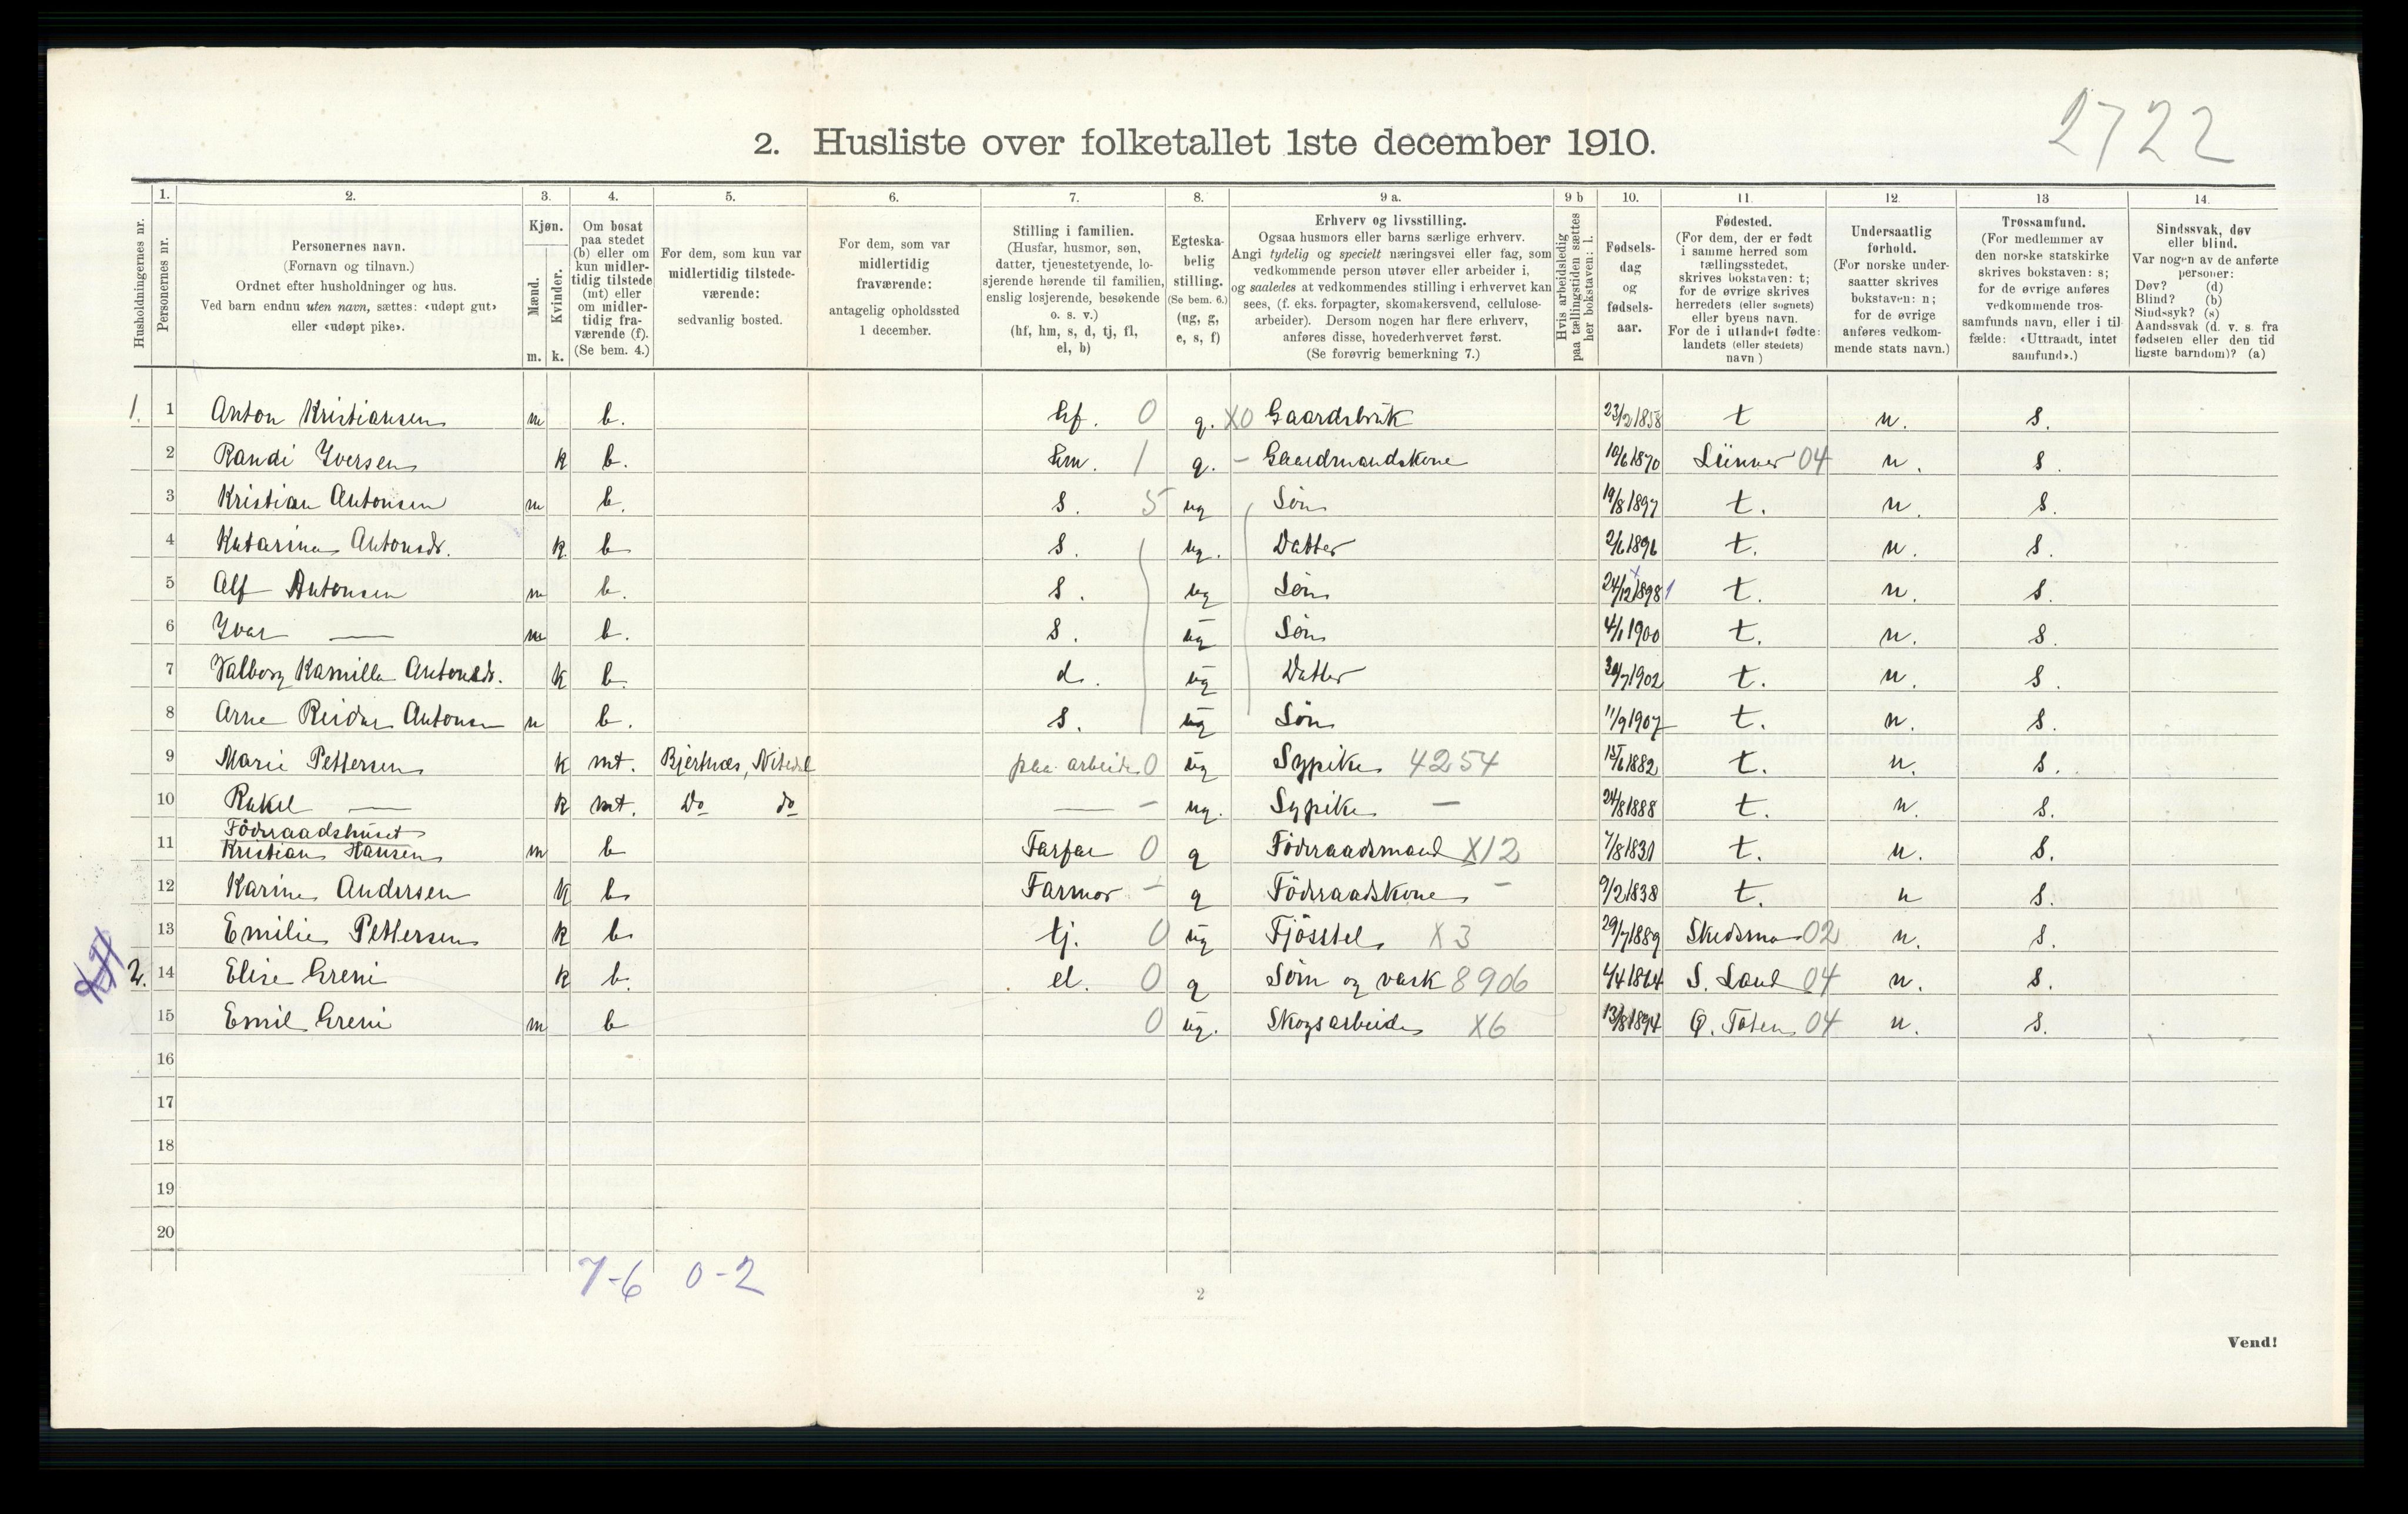 2722
2. Husliste over folketallet 1ste december 1910.
Husholdningernes nr.
1. Personernes nr.
2. Personernes navn. (Fornavn og tilnavn.) Ordnet efter husholdninger og hus. Ved barn endnu uten navn, sættes: «udøpt gut» eller «udøpt pike».
3. Kjøn. Mænd. m. Kvinder. k.
4. Om bosat paa stedet (b) eller om kun midlertidig tilstede (mt) eller om midlertidig fraværende (f). (Se bem. 4.)
5. For dem, som kun var midlertidig tilstedeværende: sedvanlig bosted.
6. For dem, som var midlertidig fraværende: antagelig opholdssted 1 december.
7. Stilling i familien. (Husfar, husmor, søn, datter, tjenestetyende, losjerende hørende til familien, enslig losjerende, besøkende o. s. v.) (hf, hm, s, d, tj, fl, el, b)
8. Egteskabelig stilling. (Se bem. 6.) (ug, g, e, s, f)
9 a. Erhverv og livsstilling. Ogsaa husmors eller barns særlige erhverv. Angi tydelig og specielt næringsvei eller fag, som vedkommende person utøver eller arbeider i, og saaledes at vedkommendes stilling i erhvervet kan sees, (f. eks. forpagter, skomakersvend, cellulosearbeider). Dersom nogen har flere erhverv, anføres disse, hovederhvervet først. (Se forøvrig bemerkning 7.)
9 b Hvis arbeidsledig paa tællingstiden sættes her bokstaven: l.
10. Fødselsdag og fødselsaar.
11. Fødested. (For dem, der er født i samme herred som tællingsstedet, skrives bokstaven: t; for de øvrige skrives herredets (eller sognets) eller byens navn. For de i utlandet fødte: landets (eller stedets) navn )
12. Undersaatlig forhold. (For norske undersaatter skrives bokstaven: n; for de øvrige anføres vedkommende stats navn.)
13 Trossamfund. (For medlemmer av den norske statskirke skrives bokstaven: s; for de øvrige anføres vedkommende trossamfunds navn, eller i tilfælde: «Uttraadt, intet samfund».)
14. Sindssvak, døv eller blind. Var nogen av de anførte personer: Døv? (d) Blind? (b) Sindssyk? (s) Aandssvak (d. v. s. fra fødselen eller den tidligste barndom)? (a)
1. 1 Anton Kristiansen m b. hf. 0 g. X0 Gaardsbruk 23/2 1858 t n. s.
2 Randi Iversen k b. hm. 1 g. – Gaardmandskone 10/6 1870 Lunner 04 n. s.
3 Kristian Antonsen m b. s. 5 ug Søn 19/8 1897 t. n. s.
4 Katarina Antonsdr. k b s. ug. Datter 2/6 1896 t. n. s.
5 Alf Antonsen m b. s. ug Søn 24/12 1898 1 t. n. s.
6 Ivar — m b. s. ug Søn 4/1 1900 t. n. s.
7 Valborg Kamilla Antonsdr. k b. d. ug Datter 30/7 1902 t. n. s.
8 Arne Reidar Antonsen m b. s. ug Søn 11/9 1907 t. n. s.
9 Marie Pettersen k mt. Bjertnæs, Nitedal paa arbeide 0 ug Sypike 4254 15/6 1882 t. n. s.
10 Rakel — k mt. Do do — – ug. Sypike – 24/8 1888 t. n. s.
Föderaadshuset
11 Kristian Hansen m b Farfar 0 g Föderaadsmand X12 7/8 1831 t. n. s.
12 Karine Andersen k b Farmor – g Föderaadskone – 9/2 1838 t. n s.
13 Emilie Pettersen k b tj. 0 ug Fjösstel X3 29/7 1889 Skedsmo 02 n. s.
2. 14 Elise Greni k b. el. 0 g Söm og vask 8906 4/4 1864 S. Land 04 n. s.
15 Emil Greni m b 0 ug. Skogsarbeide X6 13/8 1894 Ø. Toten 04 n. s.
16
17
18
19
20
7-6 0-2
2
Vend!